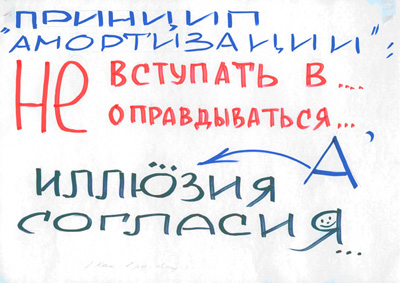 "ПРИНЦИП
АМОРТИЗАЦИИ";
НЕ ВСТУПАТЬ В...
ОПРАВДЫВАТЬСЯ...
А,
ИЛЛЮЗИЯ
СОГЛАСИЯ...